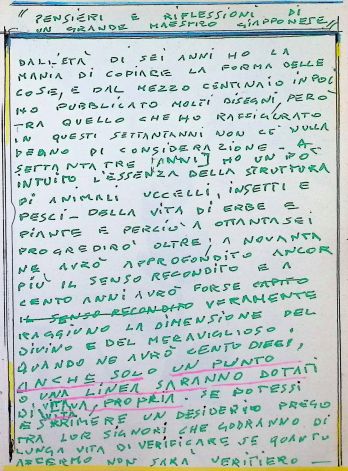 "PENSIERI E RIFLESSIONI DI
UN GRANDE MAESTRO GIAPPONESE"
DALL'ETÀ DI SEI ANNI HO LA
MANIA DI COPIARE LA FORMA DELLE
COSE, E DAL MEZZO CENTINAIO IN POI
HO PUBBLICATO MOLTI DISEGNI, PERÒ
TRA QUELLO CHE HO RAFFIGURATO
IN QUESTI SETTANTANNI NON C'È NULLA
DEGNO DI CONSIDERAZIONE - A
SETTANTATRE [ANNI] HO UN PO'
INTUITO L'ESSENZA DELLA STRUTTURA
DI ANIMALI UCCELLI, INSETTI E
PESCI - DELLA VITA DI ERBE E
PIANTE E PERCIÒ A OTTANTASEI
PROGREDIRÒ OLTRE, A NOVANTA
NE AVRÒ APPROFONDITO ANCOR
PIÙ IL SENSO RECONDITO E A
CENTO ANNI AVRÒ FORSE CAPITO
IL SENSO RECONDITO VERAMENTE
RAGGIUNTO LA DIMENSIONE DEL
DIVINO E DEL MERAVIGLIOSO.
QUANDO NE AVRÒ CENTO DIECI,
ANCHE SOLO UN PUNTO
O UNA LINEA SARANNO DOTATI
DI VITA PROPRIA. SE POTESSI
ESPRIMERE UN DESIDERIO PREGO
TRA LOR SIGNORI CHE GODRANNO DI
LUNGA VITA DI VERIFICARE SE QUANTO
NON SARÀ VERITIERO -